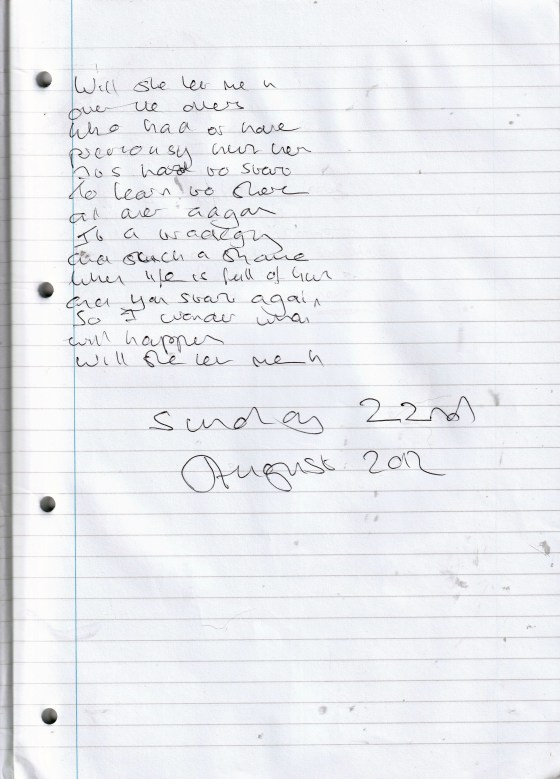 Will she let me in
over the others
who had or have
previously hurt her
Its hard to start
to learn to share
all over aagan
Its a tradegy
and such a shame
when life is full of hurt
and you start again
So I wonder what
will happen
will she let me in
Sunday 22nd
August 2012